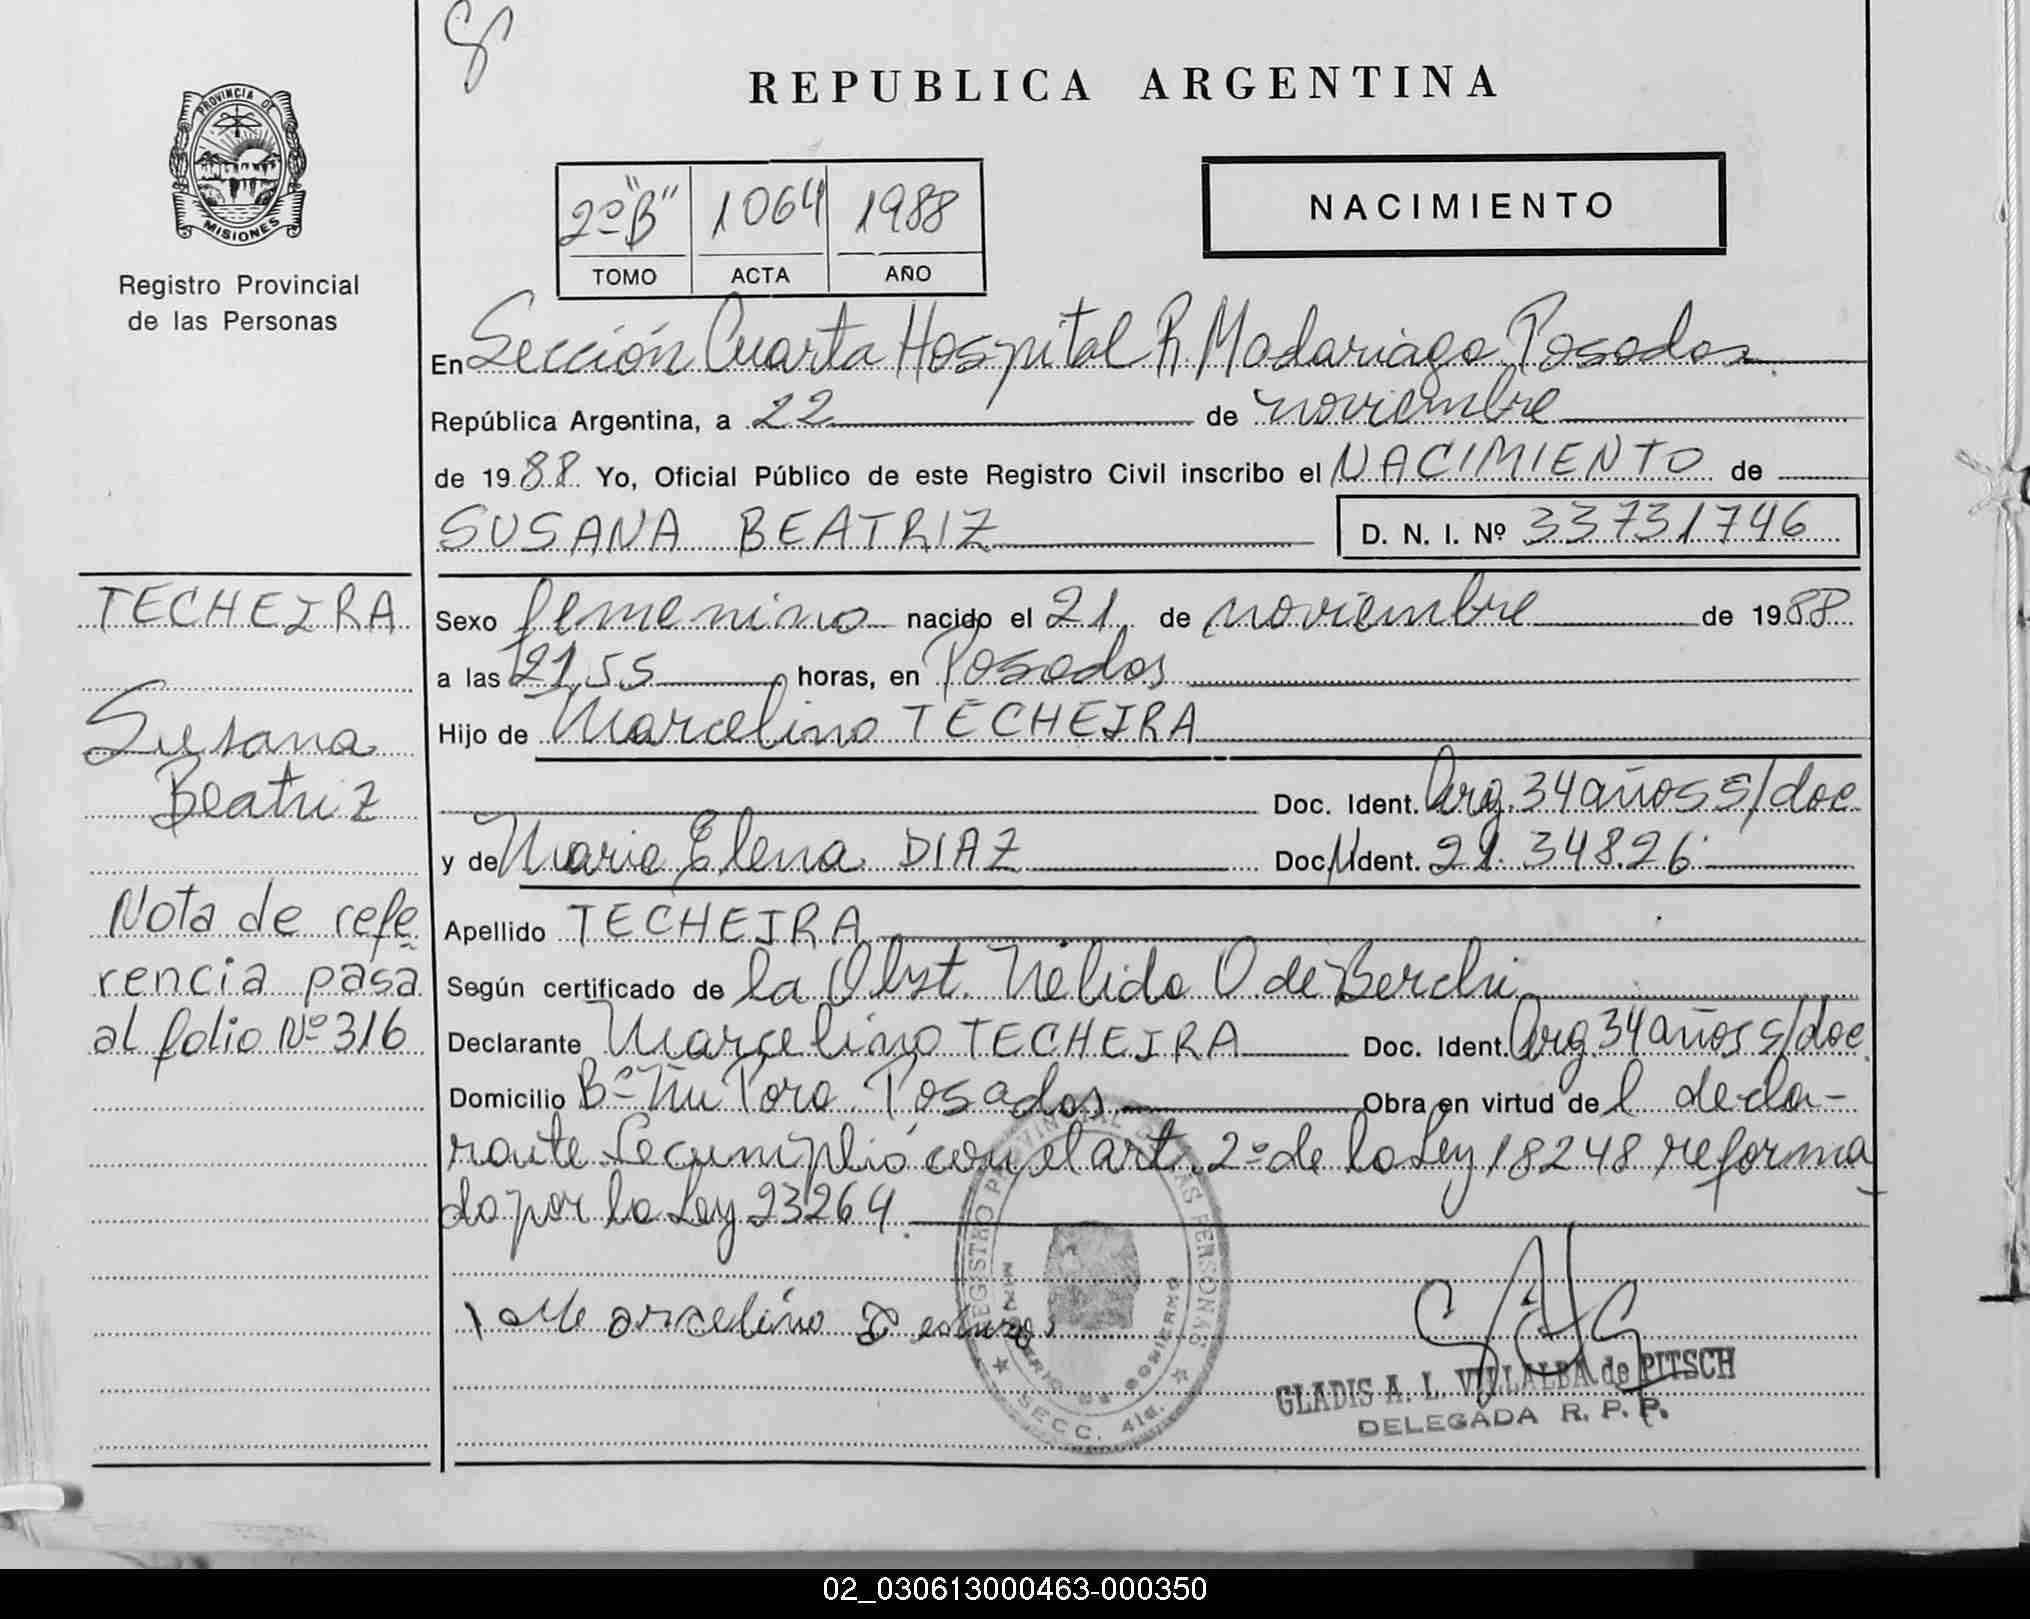 REPUBLICA ARGENTINA
PROVINCIA DE
MISIONES
Registro Provincial
de las Personas
2º "B" 1064 1988
TOMO ACTA AÑO
NACIMIENTO
En Sección Cuarta Hospital R. Madariaga Posadas
República Argentina, a 22 de noviembre
de 1988 Yo, Oficial Público de este Registro Civil inscribo el NACIMIENTO de
SUSANA BEATRIZ D. N. I. Nº 33731746
TECHEIRA
Susana
Beatriz
Nota de refe
rencia pasa
al folio Nº 316
Sexo femenino nacido el 21 de noviembre de 1988
a las 21,55 horas, en Posadas
Hijo de Marcelino TECHEIRA
Doc. Ident. Arg. 34 años s/doc
y de Maria Elena DIAZ Doc. Ident. 21.34826
Apellido TECHEIRA
Según certificado de la Obst. Nélida O. de Berchi
Declarante Marcelino TECHEIRA Doc. Ident. Arg 34 años s/doc
Domicilio Bº Ñu Pora. Posadas Obra en virtud de l decla-
rante Se cumplió con el art. 2º de la Ley 18248 reforma
do por la Ley 23264.
Marcelino
REGISTRO PROVINCIAL DE LAS PERSONAS
MINISTERIO DE GOBIERNO
SECC. 4ta.
GLADIS A. I. VILLALBA de PITSCH
DELEGADA R. P. P.
02_030613000463-000350